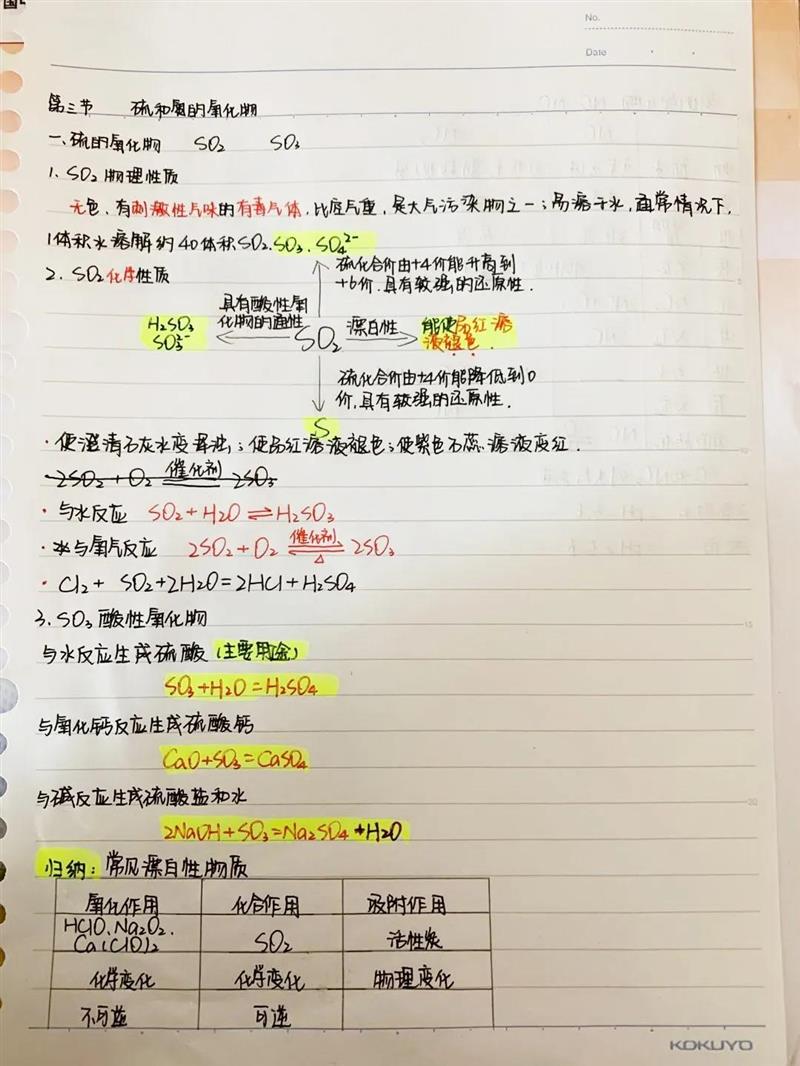 国
No.
Date
第三节 硫和氮的氧化物
一、硫的氧化物 SO2 SO3
1. SO2 物理性质
无色、有刺激性气味的有毒气体,比空气重,是大气污染物之一;易溶于水,通常情况下,
1体积水溶解约40体积SO2. SO3. SO4²⁻
2. SO2 化学性质
硫化合价由+4价能升高到
+6价.具有较强的还原性.
具有酸性氧
化物的通性
H2SO3
SO3²⁻
SO2
漂白性
能使品红溶
液褪色.
硫化合价由+4价能降低到0
价,具有较强的还原性.
S
·使澄清石灰水变浑浊;使品红溶液褪色;使紫色石蕊溶液变红.
2SO2 + O2 催化剂 2SO3
·与水反应 SO2+H2O⇌H2SO3
·与氧气反应 2SO2+O2 催化剂 △ 2SO3
·Cl2+ SO2+2H2O=2HCl+H2SO4
3. SO3 酸性氧化物
与水反应生成硫酸(主要用途)
SO3+H2O=H2SO4
与氧化钙反应生成硫酸钙
CaO+SO3=CaSO4
与碱反应生成硫酸盐和水
2NaOH+SO3=Na2SO4+H2O
归纳:常见漂白性物质
氧化作用 化合作用 吸附作用
HClO、Na2O2、
Ca(ClO)2 SO2 活性炭
化学变化 化学变化 物理变化
不可逆 可逆
KOKUYO